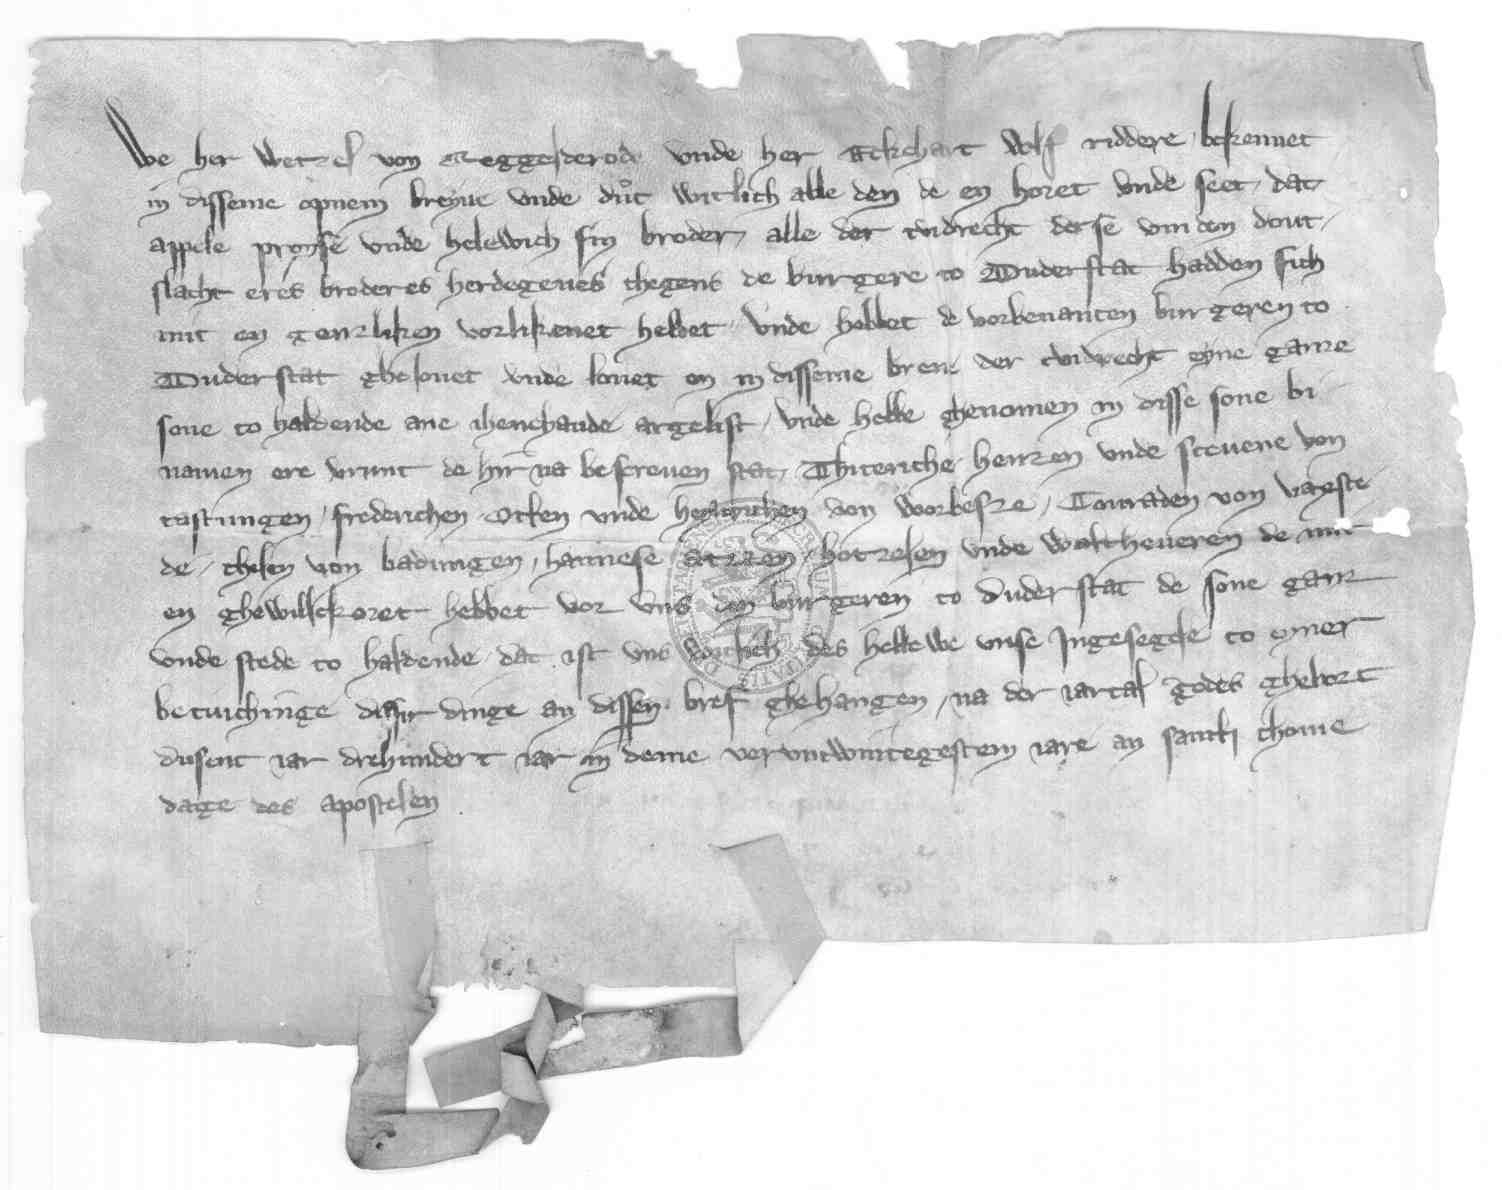 We her Wetzel von Teggelderode unde her Eckehart Wolf riddere bekennet
in disseme openem breyue unde duͦt witlich alle den de en horet unde seet, dat
appele proyse unde helewich sin broder, alle der tvidrecht der se um den dout
slacht eres broderes herdegenes thegens de burgere to Duderstat hadden sich
mit en genzliken vorlikenet hebbet, unde hebbet de vorbenanten burgeren to
Duderstat ghelouet unde louet en in disseme breue der tvidrecht eyne ganze
sone to haldende ane ihenehande argelist, unde hebbe ghenomen in disse sone bi
namen ere vrunt de hir na bescreuen stat, Thiteriche henzen unde steuene von
tastungen, frederichen Otten unde heydenrichen von Worbeske, Conraden von vreste
de, thelen von badungen, hannese atzen, hotzelen unde Woltheueren de mit
en ghewillekoret hebbet vor uns den burgeren to Duderstat de sone ganz
unde stede to haldende, dat ist uns witlich, des hebbe we unse Ingesegele to eyner
betuichinge disser dinge an dissen bref ghehangen, na der iartal godes ghebort
dusent iar drehundert iar in deme vervntwintegestem iare an sancti thome
dage des apostelen